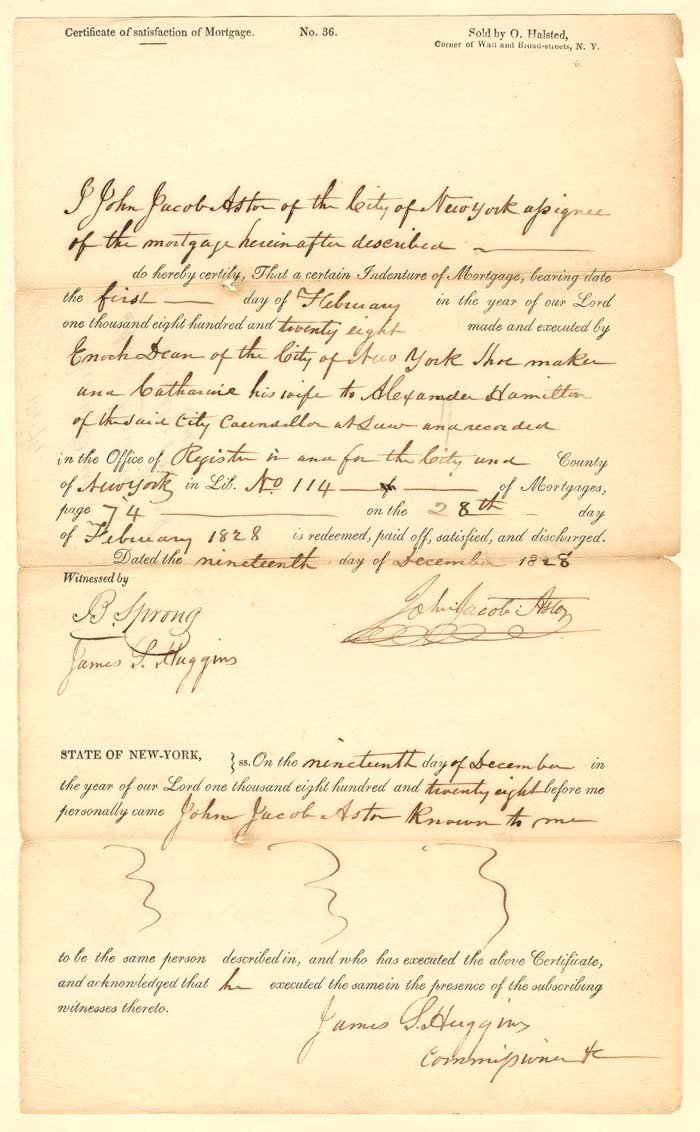 Certificate of satisfaction of Mortgage. No. 36. Sold by O. Halsted,
Corner of Wall and Broad-streets, N. Y.
I John Jacob Astor of the City of New York assignee
of the mortgage hereinafter described
do hereby certify, That a certain Indenture of Mortgage, bearing date
the first day of February in the year of our Lord
one thousand eight hundred and twenty eight made and executed by
Enoch Dean of the City of New York Shoe maker
and Catharine his wife to Alexander Hamilton
of the said City Counsellor at Law and recorded
in the Office of Register in and for the City and County
of New York in Lib. No 114 of Mortgages,
page 74 on the 28th day
of February 1828 is redeemed, paid off, satisfied, and discharged.
Dated the nineteenth day of December 1828
Witnessed by
B. Sprong John Jacob Astor
James S. Huggins
STATE OF NEW-YORK, } ss. On the nineteenth day of December in
the year of our Lord one thousand eight hundred and twenty eight before me
personally came John Jacob Astor Known to me
to be the same person described in, and who has executed the above Certificate,
and acknowledged that he executed the same in the presence of the subscribing
witnesses thereto.
James S. Huggins
Commissioner &c